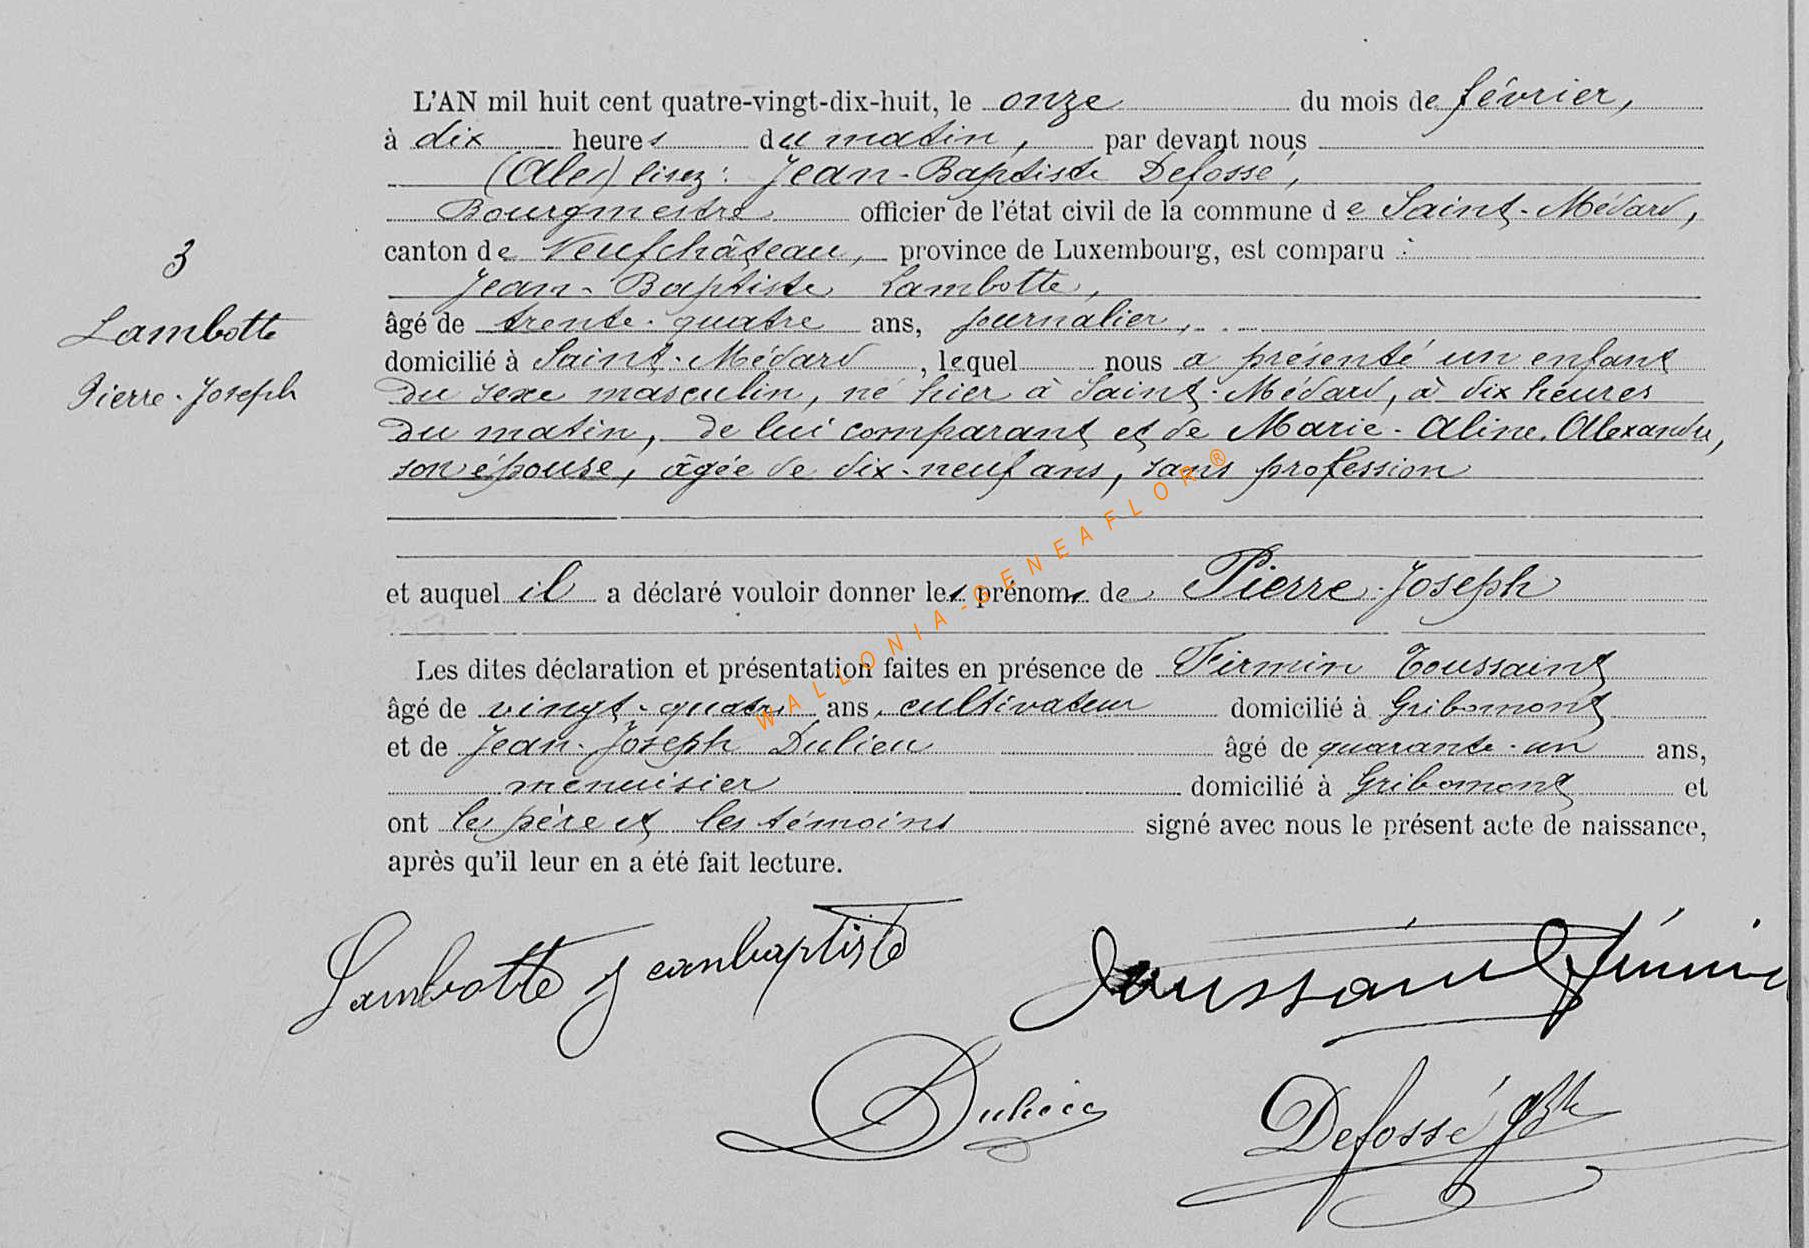 L'AN mil huit cent quatre-vingt-dix-huit, le onze du mois de février,
à dix heures du matin, par devant nous
(Alex) lisez: Jean-Baptiste Defossé,
Bourgmestre officier de l'état civil de la commune de Saint-Médard,
canton de Neufchâteau, province de Luxembourg, est comparu :
Jean-Baptiste Lambotte,
âgé de trente-quatre ans, journalier,
domicilié à Saint-Médard, lequel nous a présenté un enfant
du sexe masculin, né hier à Saint-Médard, à dix heures
du matin, de lui comparant et de Marie-Aline Alexandre,
son épouse, âgée de dix-neuf ans, sans profession
et auquel il a déclaré vouloir donner les prénoms de Pierre-Joseph
Les dites déclaration et présentation faites en présence de Firmin Toussaint
âgé de vingt-quatre ans, cultivateur domicilié à Gribomont
et de Jean-Joseph Dulieu âgé de quarante-un ans,
menuisier domicilié à Gribomont et
ont le père et les témoins signé avec nous le présent acte de naissance,
après qu'il leur en a été fait lecture.
3
Lambotte
Pierre-Joseph
Lambotte Jeanbaptiste
Toussaint Firmin
Dulieu
Defossé JBte
WALLONIA-GENEAFLOR®